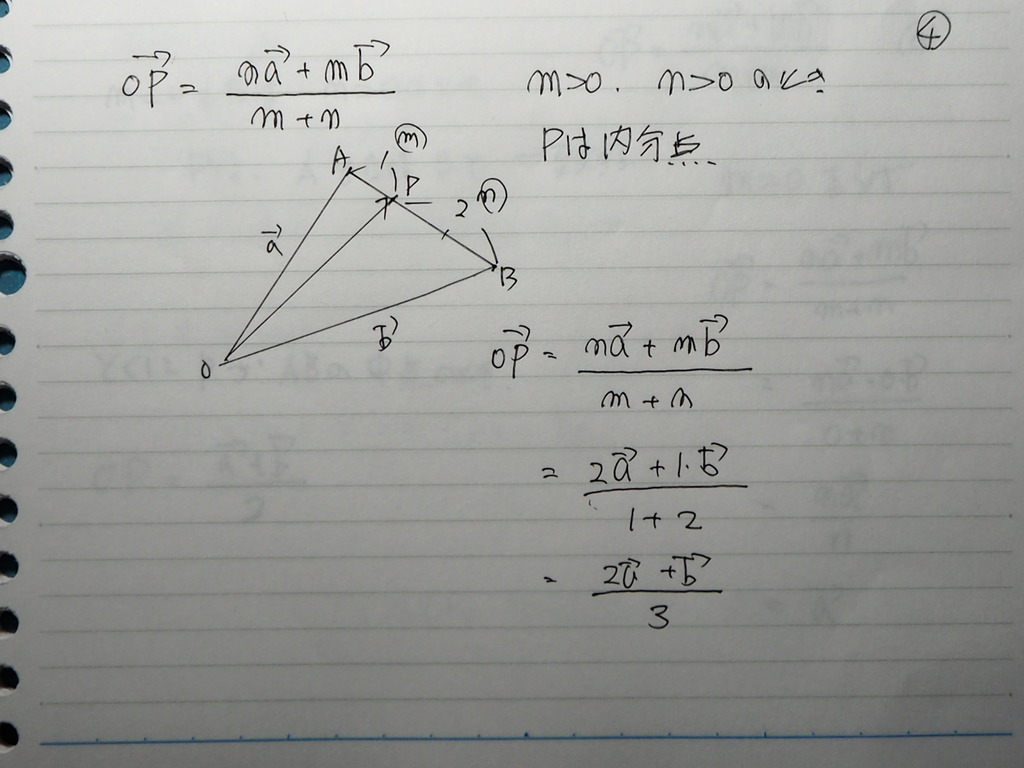 ④
OP→ = (na→ + mb→)/(m+n)
m>0. n>0 のとき
Pは内分点
A 1 ⓜ
P 2 ⓝ
a→
B
b→
O
OP→ = (na→ + mb→)/(m+n)
= (2a→ + 1·b→)/(1+2)
= (2a→ + b→)/3